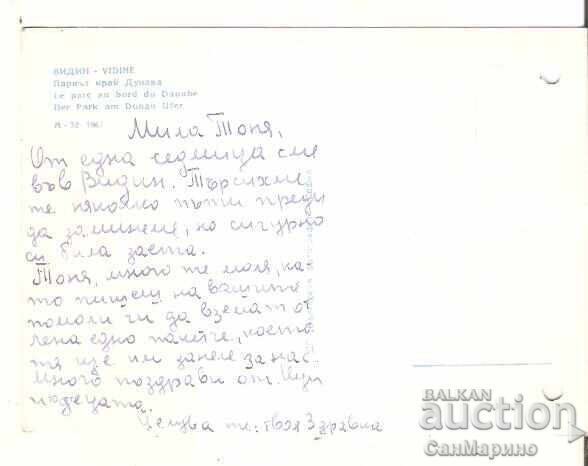 ВИДИН - VIDINE
Паркът край Дунава
Le parc au bord du Danube
Der Park am Donau Ufer
Мила Тоня,
От една седмица сме
във Видин. Търсихме
те няколко пъти преди
да заминеме, но сигурно
си била заета.
Тоня, много те моля, ка-
то пишеш на вашите
помоли ги да вземат от
лена едно пакетче, което
тя ще им занесе за нас.
Много поздрави от
и децата.
Целува те: твоя Здравка
BALKAN
auction
СанМарино